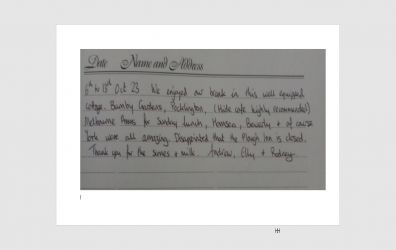 Date Name and Address
6th to 13th Oct 23 We enjoyed our break in this well equipped
cottage. Burnby Gardens, Pocklington, (Hide cafe highly recommended)
Melbourne Arms for Sunday lunch, Hornsea, Beverley + of course
York were all amazing. Disappointed that the Plough Inn is closed.
Thank you for the scones + milk. Andrew, Elly + Rodney.